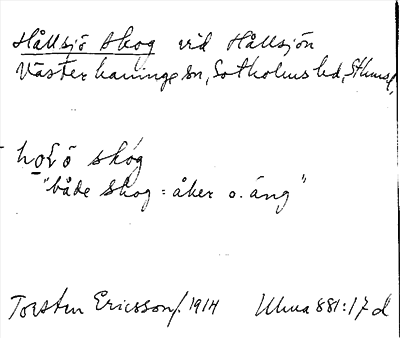 Hållsjö skog vid Hållsjön
Västerhaninge sn, Sotholms hd, Sthms l.
skóg
"både skog: åker o. äng"
Torsten Ericsson 1914 Uluma 881:17 d